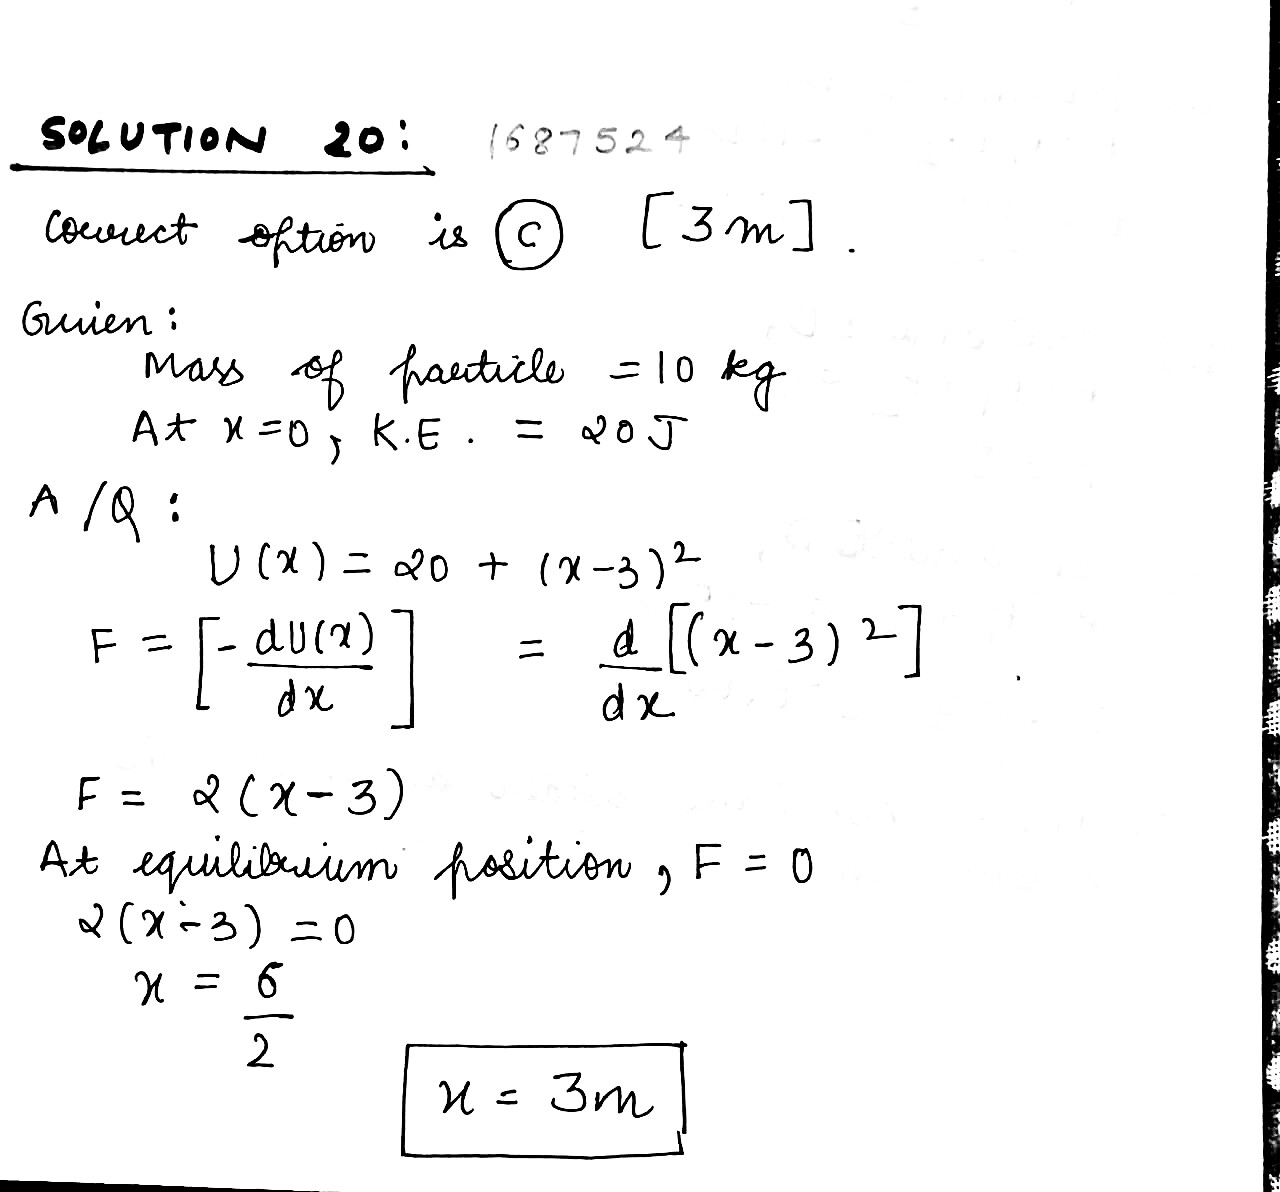 SOLUTION 20: 1687524
Correct option is (C) [3m].
Given:
Mass of particle = 10 kg
At x=0, K.E. = 20J
A/Q:
U(x) = 20 + (x-3)²
F = [- dU(x)/dx] = d/dx [(x-3)²]
F = 2(x-3)
At equilibrium position, F = 0
2(x-3) = 0
x = 6/2
x = 3m